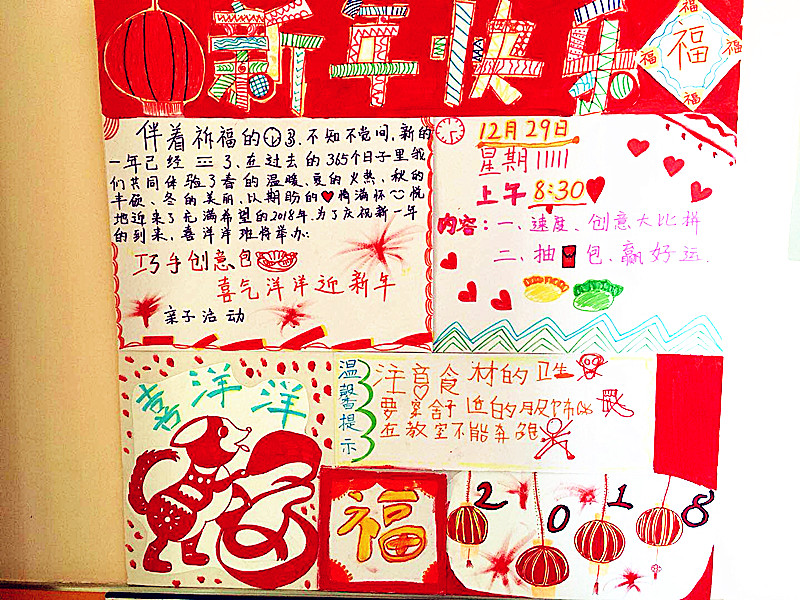 新年快乐
福
福
福
福
福
伴着祈福的声,不知不觉间,新的
一年已经三了,在过去的365个日子里我
们共同体验了春的温暖、夏的火热、秋的
丰硕、冬的美丽,以期盼的满怀悦
地迎来了充满希望的2018年,为了庆祝新一年
的到来,喜洋洋班将举办:
巧手创意包
喜气洋洋迎新年
亲子活动
12月29日
星期
上午8:30
内容:一、速度、创意大比拼
二、抽包、赢好运.
喜洋洋
温馨提示
注意食材的卫生
要穿舒适的服饰
在教室不能奔跑
福
2018